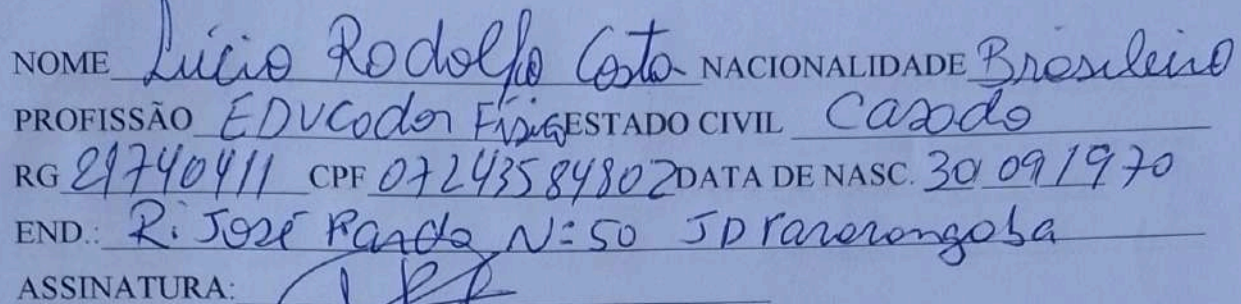 NOME Lúcio Rodolfo Costa NACIONALIDADE Brasileiro
PROFISSÃO EDUCador Físico ESTADO CIVIL Casado
RG 21740411 CPF 07243584802 DATA DE NASC. 30/09/1970
END.: R. José Pando N: 50 JD
ASSINATURA: